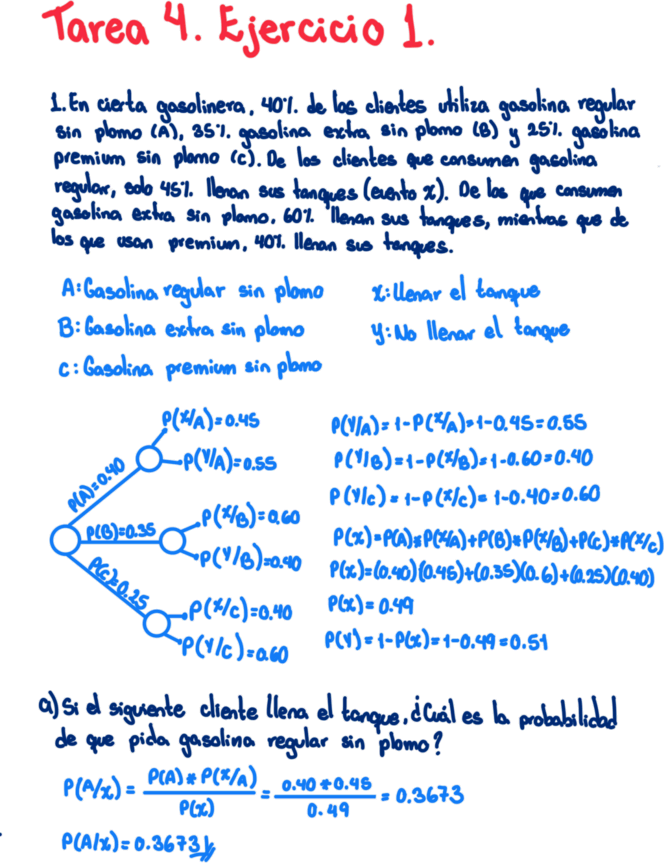 Tarea 4. Ejercicio 1.
1. En cierta gasolinera, 40%. de los clientes utiliza gasolina regular
sin plomo (A), 35%. gasolina extra sin plomo (B) y 25%. gasolina
premium sin plomo (c). De los clientes que consumen gasolina
regular, solo 45%. llenan sus tanques (evento x). De los que consumen
gasolina extra sin plomo, 60%. llenan sus tanques, mientras que de
los que usan premium, 40%. llenan sus tanques.
A: Gasolina regular sin plomo
x: Llenar el tanque
B: Gasolina extra sin plomo
y: No llenar el tanque
c: Gasolina premium sin plomo
P(A)=0.40
P(x/A)=0.45
P(Y/A)=0.55
P(B)=0.35
P(x/B)=0.60
P(Y/B)=0.40
P(C)=0.25
P(x/C)=0.40
P(Y/C)=0.60
P(Y/A)=1-P(x/A)=1-0.45=0.55
P(Y/B)=1-P(x/B)=1-0.60=0.40
P(Y/c)=1-P(x/c)=1-0.40=0.60
P(x)=P(A)*P(x/A)+P(B)*P(x/B)+P(c)*P(x/c)
P(x)=(0.40)(0.45)+(0.35)(0.6)+(0.25)(0.40)
P(x)=0.49
P(Y)=1-P(x)=1-0.49=0.51
a) Si el siguiente cliente llena el tanque, ¿Cuál es la probabilidad
de que pida gasolina regular sin plomo?
P(A/x) = P(A)*P(x/A) / P(x) = 0.40*0.45 / 0.49 = 0.3673
P(A/x)=0.3673